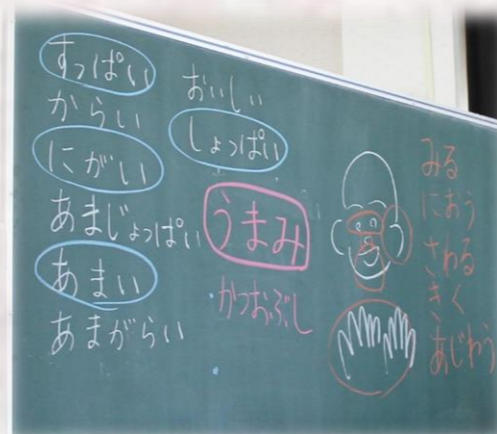 すっぱい
からい
にがい
あまじょっぱい
あまい
あまがらい
おいしい
しょっぱい
うまみ
かつおぶし
みる
におう
さわる
きく
あじわう